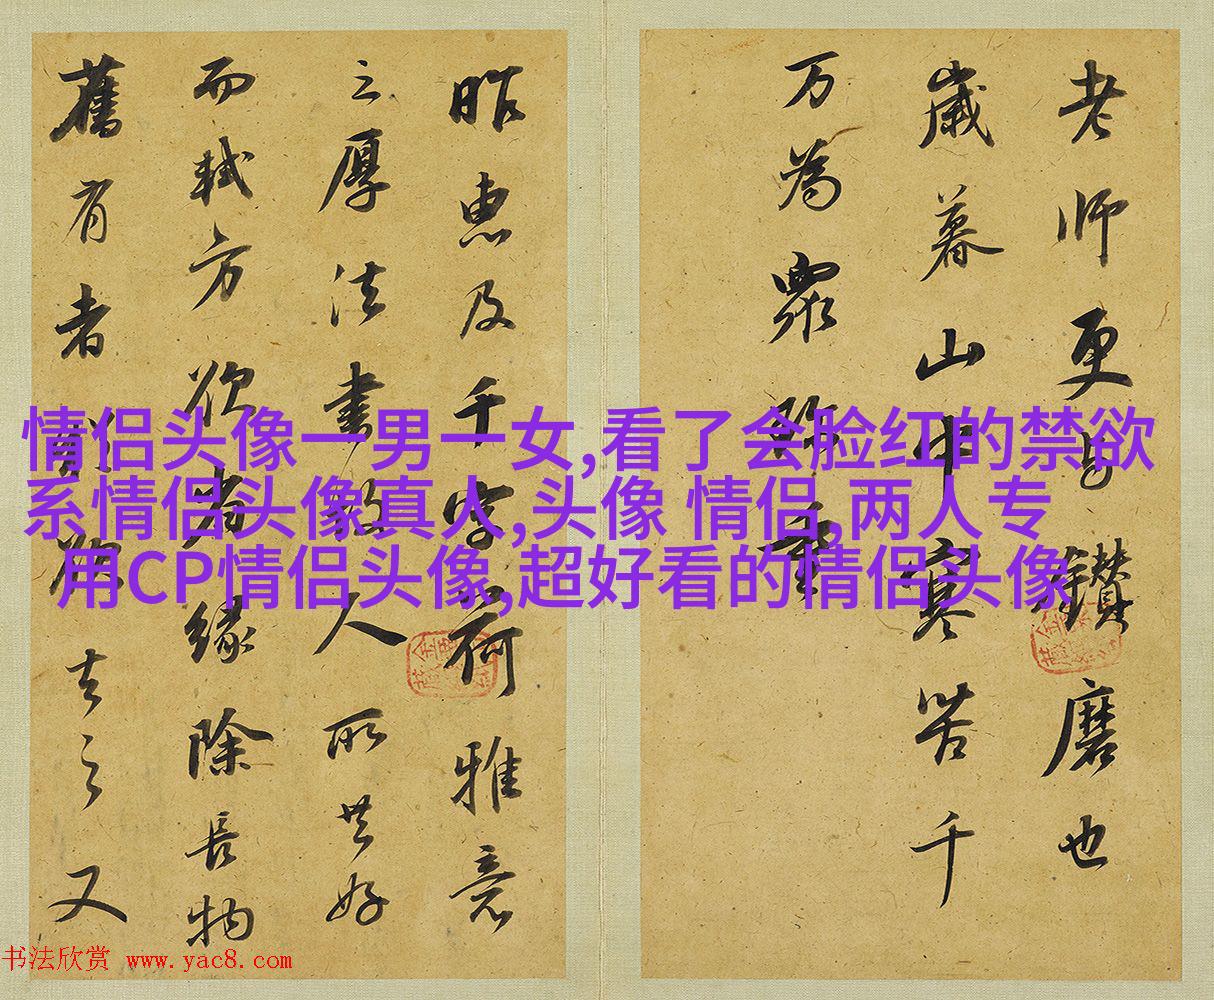 情侣头像一男一女,看了会脸红的禁欲
系情侣头像真人,头像 情侣,两人专
用CP情侣头像,超好看的情侣头像
老師更鑽磨也
歲暮山中寒苦千
万為眾珎重
昨惠及千字荷雅意
之厚法書人所共好
而軾方欲省緣除長物
舊有者欲去之又
书法欣赏 www.yac8.com